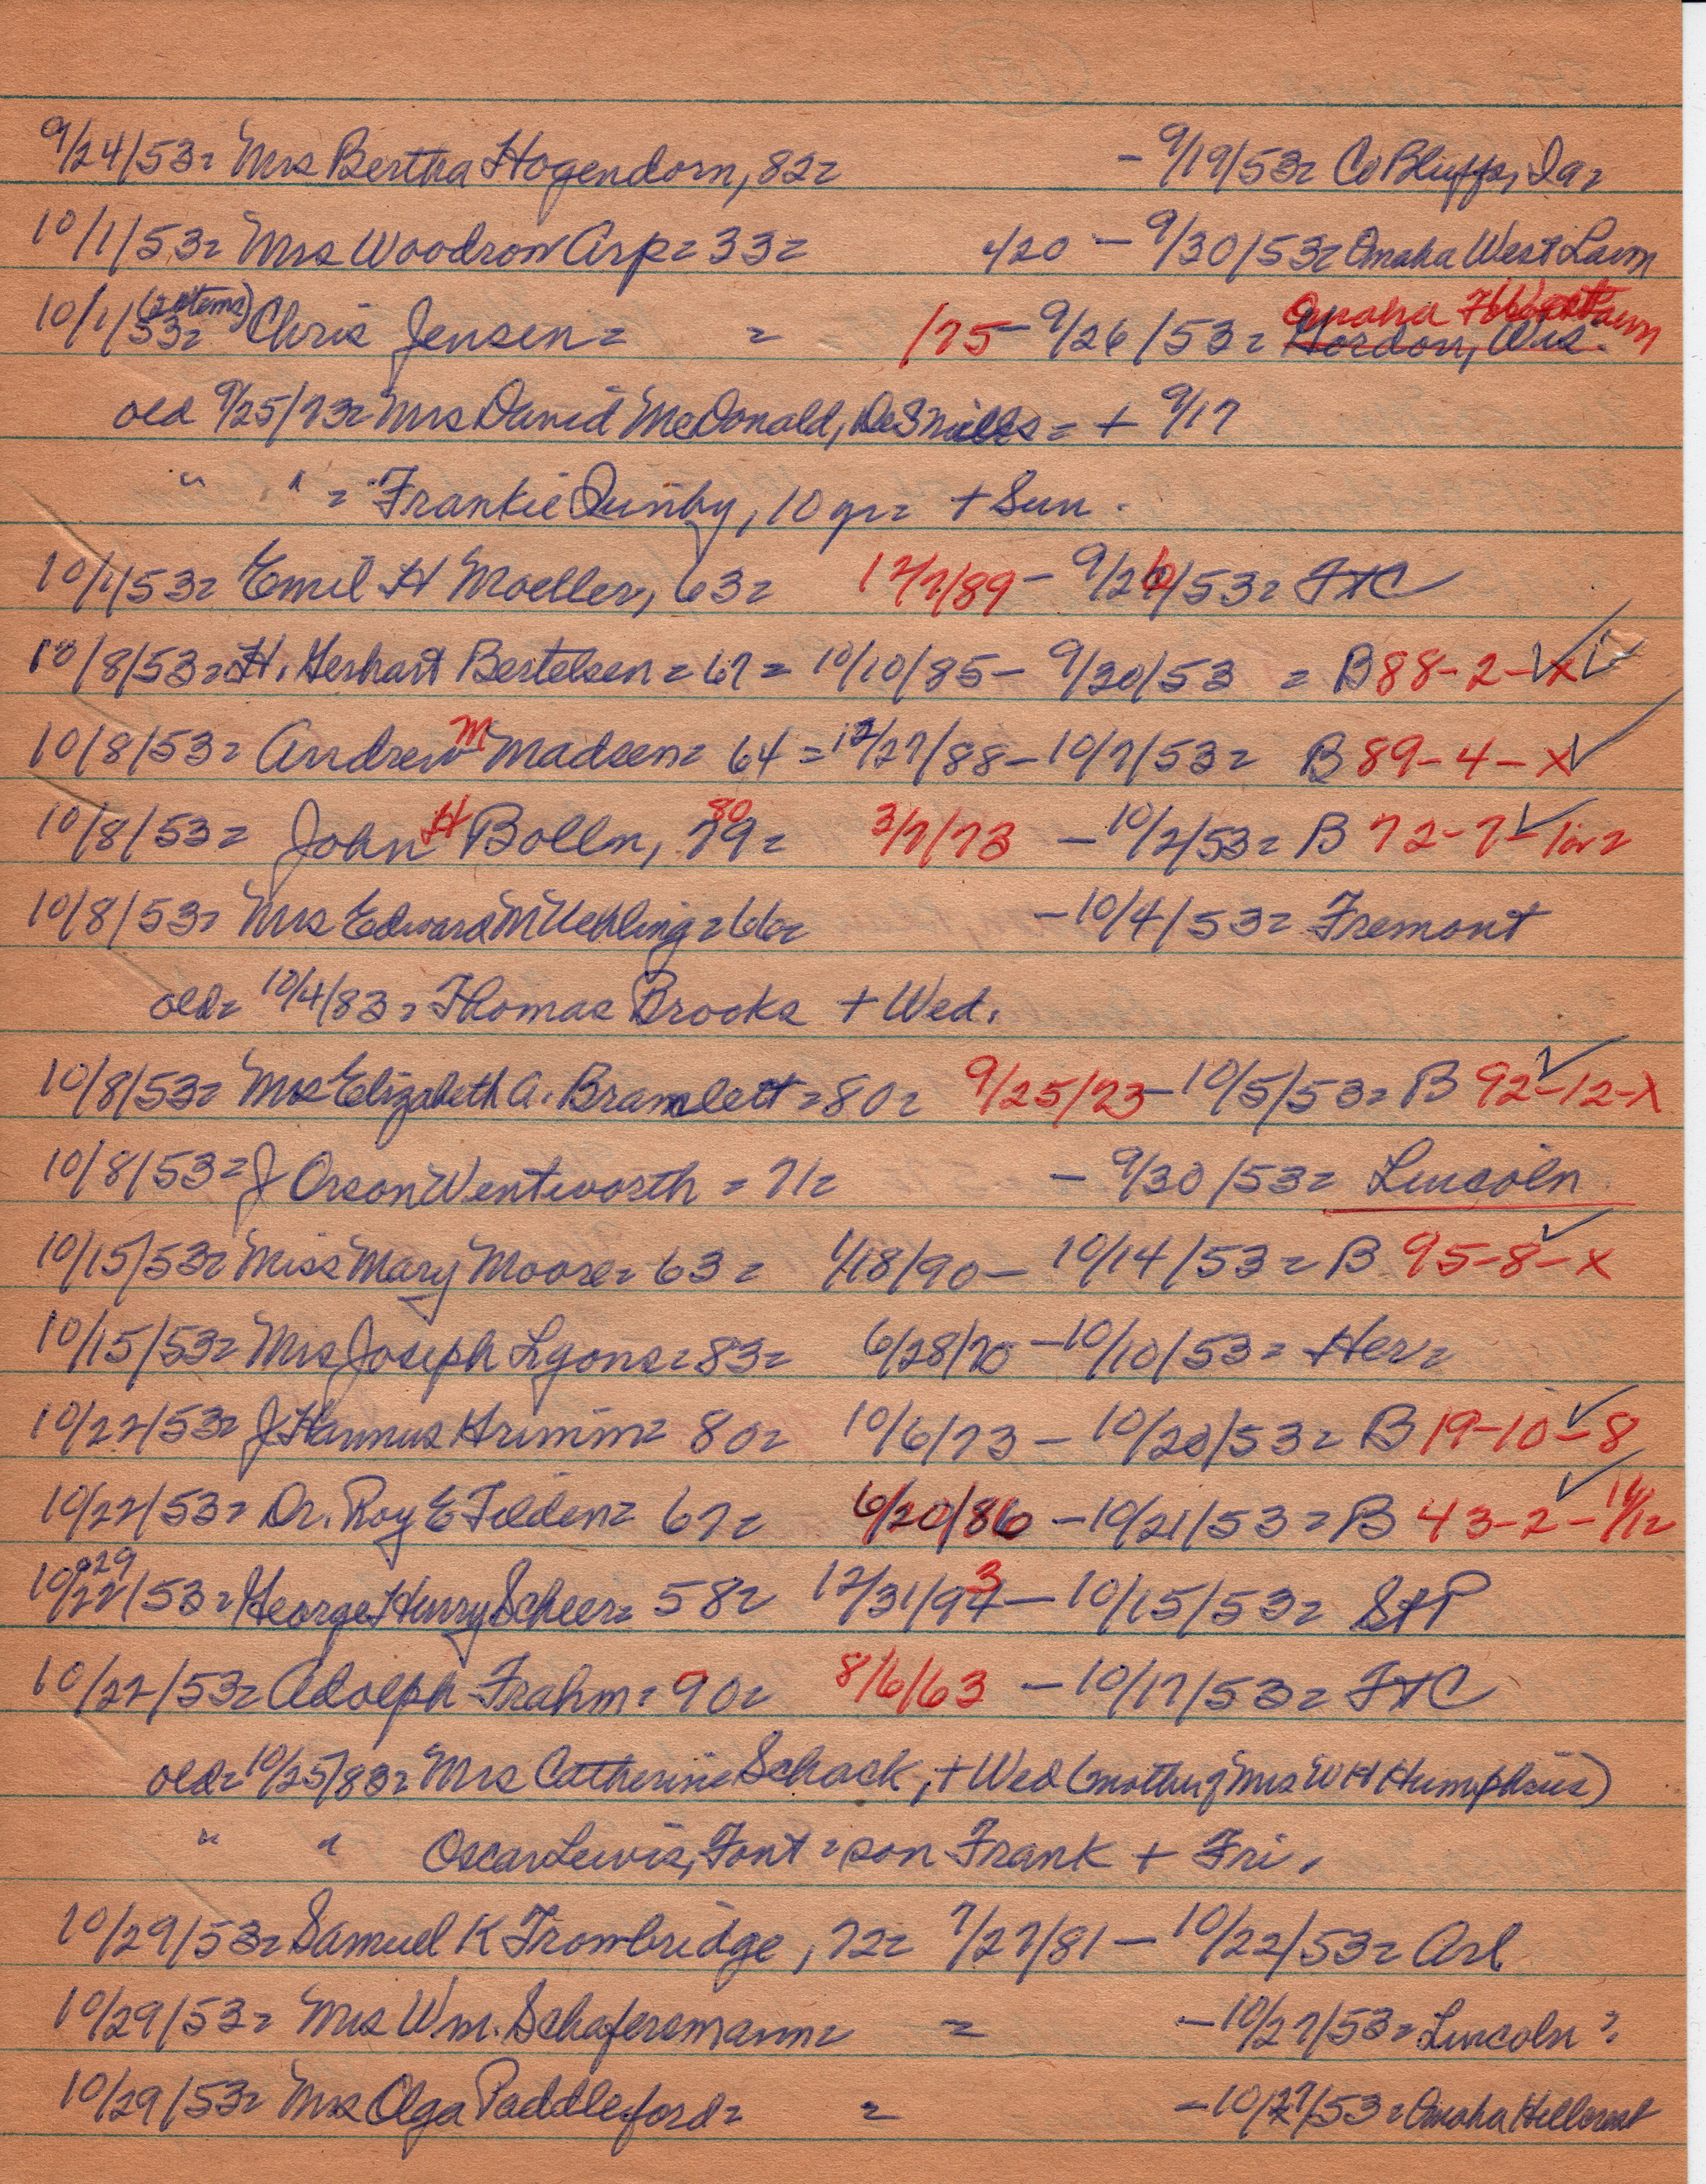 9/24/53= Mrs Bertha Hogendorn, 82= - 9/19/53= Co Bluffs, Ia=
10/1/53= Mrs Woodrow Arp= 33= 1/20 - 9/30/53= Omaha West Lawn
10/1/53= (2 items) Chris Jensen= = /75 - 9/26/53= Gordon, Wis. Omaha West Lawn
old 9/25/73= Mrs David McDonald, = + 9/17
" " = Frankie Quinby, 10 yr= + Sun.
10/1/53= Emil H Moeller, 63= 12/7/89 - 9/26/53= FtC
10/8/53= H. Gerhart Bertelsen= 67= 10/10/85 - 9/30/53 = B 88-2-X
10/8/53= Andrew M Madsen= 64= 12/27/88 - 10/7/53= B 89-4-X
10/8/53= John H Bolln, 79= 80 3/7/73 - 10/2/53= B 72-7-1or2
10/8/53= Mrs Edward M Uehling= 66= - 10/4/53= Fremont
old= 10/4/83= Thomas Brooks + Wed.
10/8/53= Mrs Elizabeth A. Bramlett= 80= 9/25/73 - 10/5/53= B 92-12-X
10/8/53= J Orson Wentworth= 71= - 9/30/53= Lincoln
10/15/53= Miss Mary Moore= 63= 1/18/90 - 10/14/53= B 95-8-X
10/15/53= Mrs Joseph Lyons= 83= 6/28/70 - 10/10/53= Her=
10/22/53= J Hannus Grimm= 80= 10/6/73 - 10/20/53= B 19-10-8
10/22/53= Dr. Roy E Tilden= 67= 6/20/86 - 10/21/53= B 43-2-11/12
10/22/53= 29 George Henry Scheer= 58= 12/31/94 3 - 10/15/53= StP
10/22/53= Adolph Frahm= 90= 8/6/63 - 10/17/53= FtC
old= 10/25/83= Mrs Catherine Schack, + Wed (mother of Mrs W H Humphries)
" " Oscar Lewis, Font= son Frank + Fri.
10/29/53= Samuel K Trowbridge, 72= 7/27/81 - 10/22/53= Arl
10/29/53= Mrs Wm. Schafersmann= = - 10/27/53= Lincoln?
10/29/53= Mrs Olga Paddleford= = - 10/27/53= Omaha Hillcrest